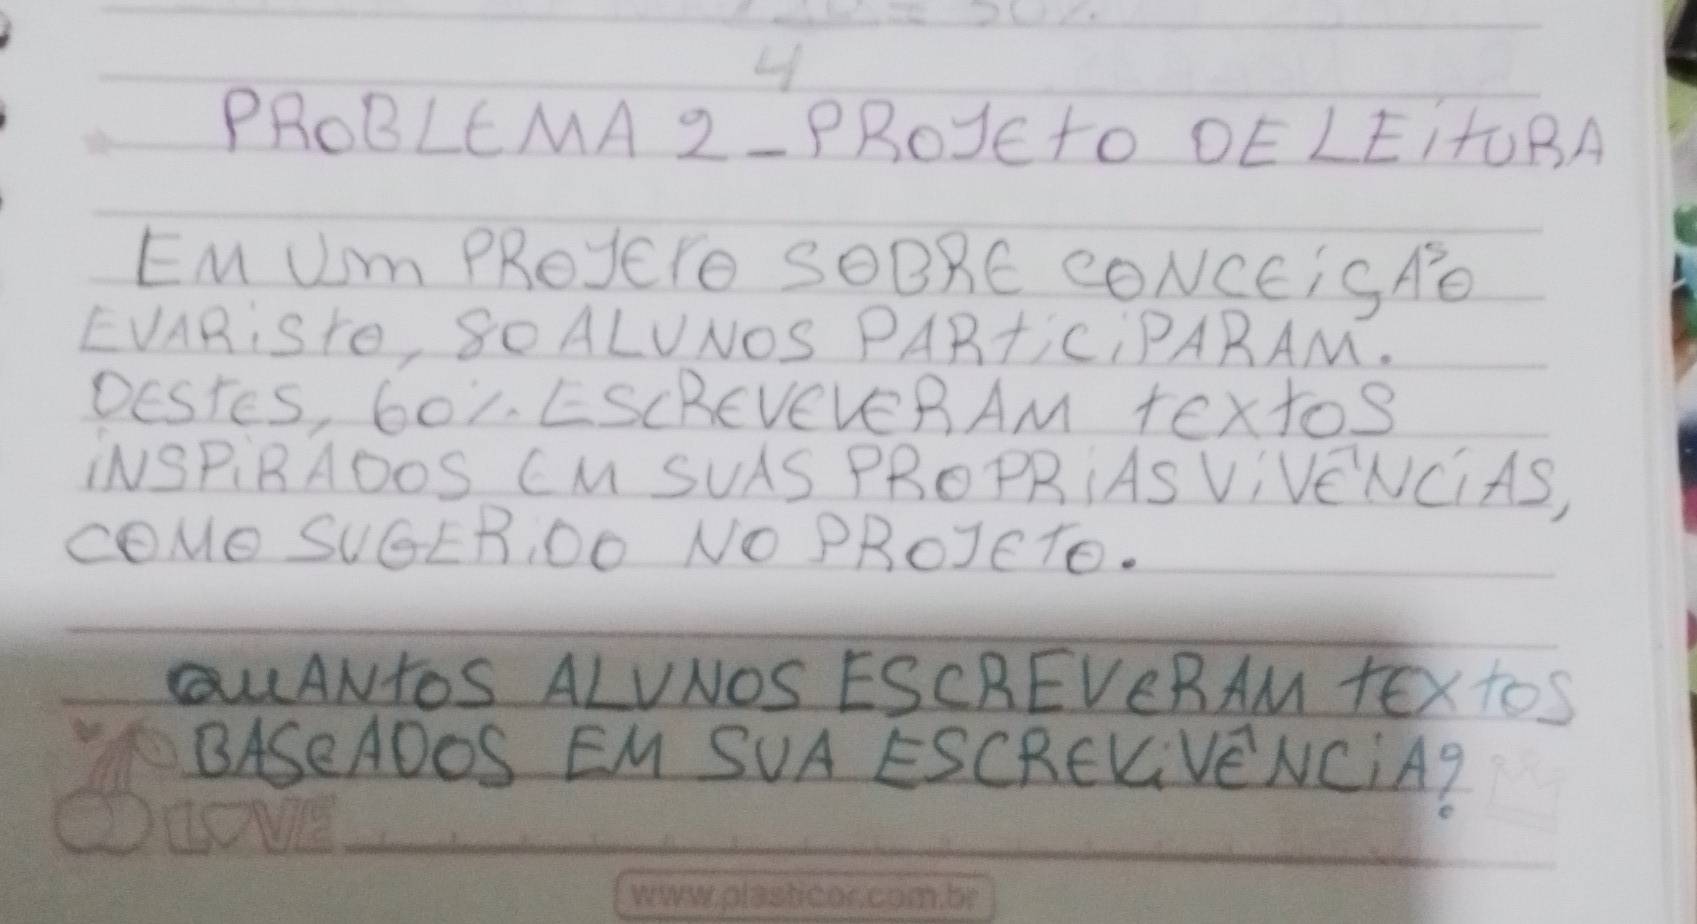 4
PROBLEMA 2 - PROJETO DE LEITURA
EM UM PROJETO SOBRE CONCEIÇÃO
EVARISTO, 80 ALUNOS PARTICIPARAM.
DESTES, 60% ESCREVEVERAM TEXTOS
INSPIRADOS EM SUAS PROPRIAS VIVÊNCIAS,
COMO SUGERIDO NO PROJETO.
QUANTOS ALUNOS ESCREVERAM TEXTOS
BASEADOS EM SUA ESCREVIVÊNCIA?
LOVE
www.plasticor.com.br